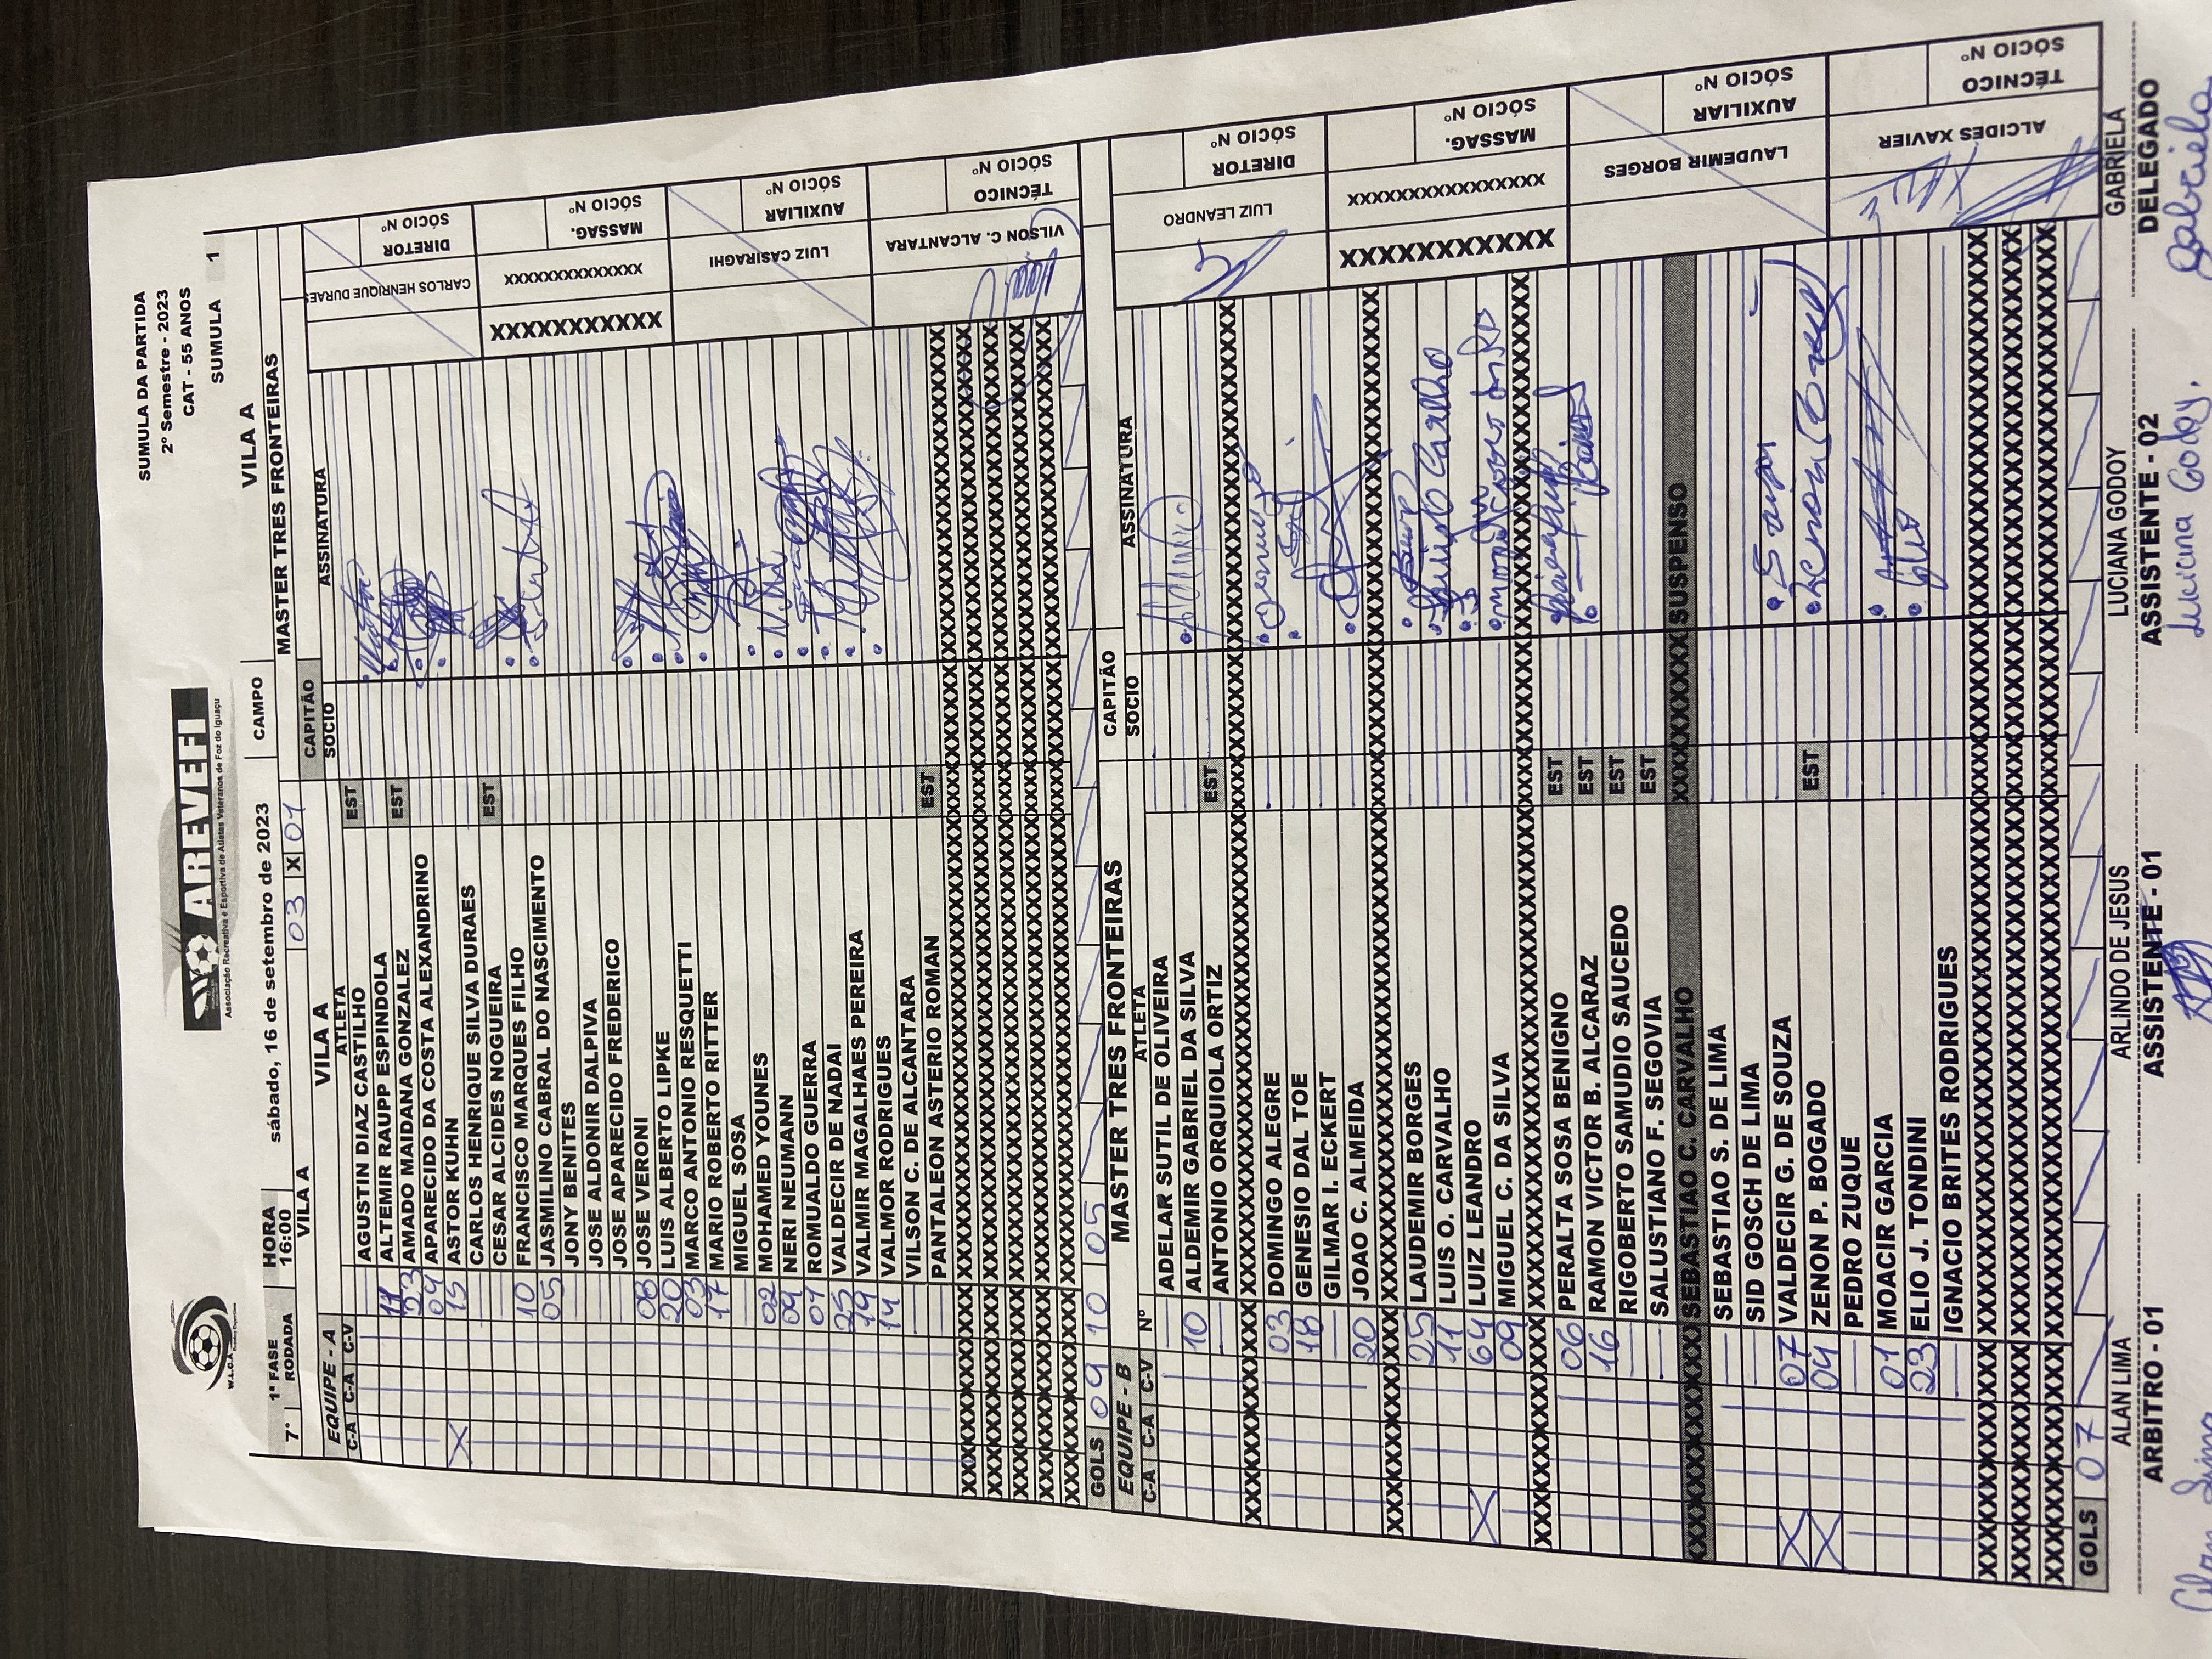 SUMULA DA PARTIDA
2º Semestre - 2023
CAT - 55 ANOS
SUMULA 1
W.L.O.A
AREVEFI
Associação Recreativa e Esportiva de Atletas Veteranos de Foz do Iguaçu
7º 1ª FASE RODADA HORA 16:00 sábado, 16 de setembro de 2023 CAMPO VILA A
VILA A 03 X 01 MASTER TRES FRONTEIRAS
EQUIPE - A VILA A CAPITÃO
C-A C-A C-V ATLETA SOCIO ASSINATURA
AGUSTIN DIAZ CASTILHO EST
11 ALTEMIR RAUPP ESPINDOLA
23 AMADO MAIDANA GONZALEZ EST
04 APARECIDO DA COSTA ALEXANDRINO
X 15 ASTOR KUHN
CARLOS HENRIQUE SILVA DURAES
CESAR ALCIDES NOGUEIRA EST
10 FRANCISCO MARQUES FILHO
05 JASMILINO CABRAL DO NASCIMENTO
JONY BENITES
JOSE ALDONIR DALPIVA
JOSE APARECIDO FREDERICO
08 JOSE VERONI
20 LUIS ALBERTO LIPKE
03 MARCO ANTONIO RESQUETTI
17 MARIO ROBERTO RITTER
MIGUEL SOSA
02 MOHAMED YOUNES
09 NERI NEUMANN
01 ROMUALDO GUERRA
25 VALDECIR DE NADAI
19 VALMIR MAGALHAES PEREIRA
14 VALMOR RODRIGUES
VILSON C. DE ALCANTARA
PANTALEON ASTERIO ROMAN EST
CARLOS HENRIQUE DURAES DIRETOR SÓCIO Nº
XXXXXXXXXXX XXXXXXXXXXXXXX MASSAG. SÓCIO Nº
LUIZ CASIRAGHI AUXILIAR SÓCIO Nº
VILSON C. ALCANTARA TÉCNICO SÓCIO Nº
GOLS 09 10 05
EQUIPE - B MASTER TRES FRONTEIRAS CAPITÃO
C-A C-A C-V Nº ATLETA SOCIO ASSINATURA
ADELAR SUTIL DE OLIVEIRA
10 ALDEMIR GABRIEL DA SILVA
ANTONIO ORQUIOLA ORTIZ EST
03 DOMINGO ALEGRE
18 GENESIO DAL TOE
GILMAR I. ECKERT
20 JOAO C. ALMEIDA
25 LAUDEMIR BORGES
11 LUIS O. CARVALHO
X 64 LUIZ LEANDRO
09 MIGUEL C. DA SILVA
06 PERALTA SOSA BENIGNO EST
16 RAMON VICTOR B. ALCARAZ EST
RIGOBERTO SAMUDIO SAUCEDO EST
SALUSTIANO F. SEGOVIA EST
SEBASTIAO C. CARVALHO SUSPENSO
SEBASTIAO S. DE LIMA
SID GOSCH DE LIMA
X 07 VALDECIR G. DE SOUZA
X 04 ZENON P. BOGADO EST
PEDRO ZUQUE
01 MOACIR GARCIA
23 ELIO J. TONDINI
IGNACIO BRITES RODRIGUES
LUIZ LEANDRO DIRETOR SÓCIO Nº
XXXXXXXXXXX XXXXXXXXXXXXXXXX MASSAG. SÓCIO Nº
LAUDEMIR BORGES AUXILIAR SÓCIO Nº
ALCIDES XAVIER TÉCNICO SÓCIO Nº
GOLS 07
ALAN LIMA ARLINDO DE JESUS LUCIANA GODOY GABRIELA
ARBITRO - 01 ASSISTENTE - 01 ASSISTENTE - 02 DELEGADO
Alan Lima Luciana Godoy. Gabriela